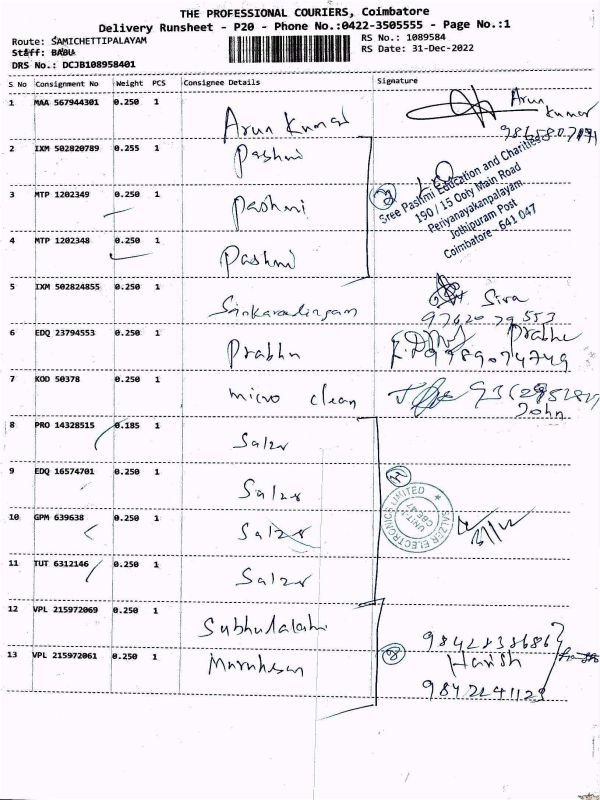 THE PROFESSIONAL COURIERS, Coimbatore
Delivery Runsheet - P20 - Phone No.:0422-3505555 - Page No.:1
Route: SAMICHETTIPALAYAM
RS No.: 1089584
Staff: BABU
RS Date: 31-Dec-2022
DRS No.: DCJB108958401
S No Consignment No Weight PCS Consignee Details Signature
1 MAA 567944301 0.250 1 Arun Kumar Arun Kumar
2 IXM 502820789 0.255 1 Pashmi
3 MTP 1202349 0.250 1 Pashmi
Sree Pashmi Education and Charities
190 / 15 Ooty Main Road
Periyanayakanpalayam
Jothipuram Post
Coimbatore - 641 047
4 MTP 1202348 0.250 1 Pashmi
5 IXM 502824855 0.250 1 Sankaralingam Siva
6 EDQ 23794553 0.250 1 Prabhu Prabhu
7 KOD 50378 0.250 1 micro clean
John
8 PRO 14328515 0.185 1 Salzer
9 EDQ 16574701 0.250 1 Salzer
SALZER ELECTRONICS LIMITED
UNIT-1
CBE-47
10 GPM 639638 0.250 1 Salzer
11 TUT 6312146 0.250 1 Salzer
12 VPL 215972069 0.250 1
13 VPL 215972061 0.250 1 Murukesan Harish
9842241123